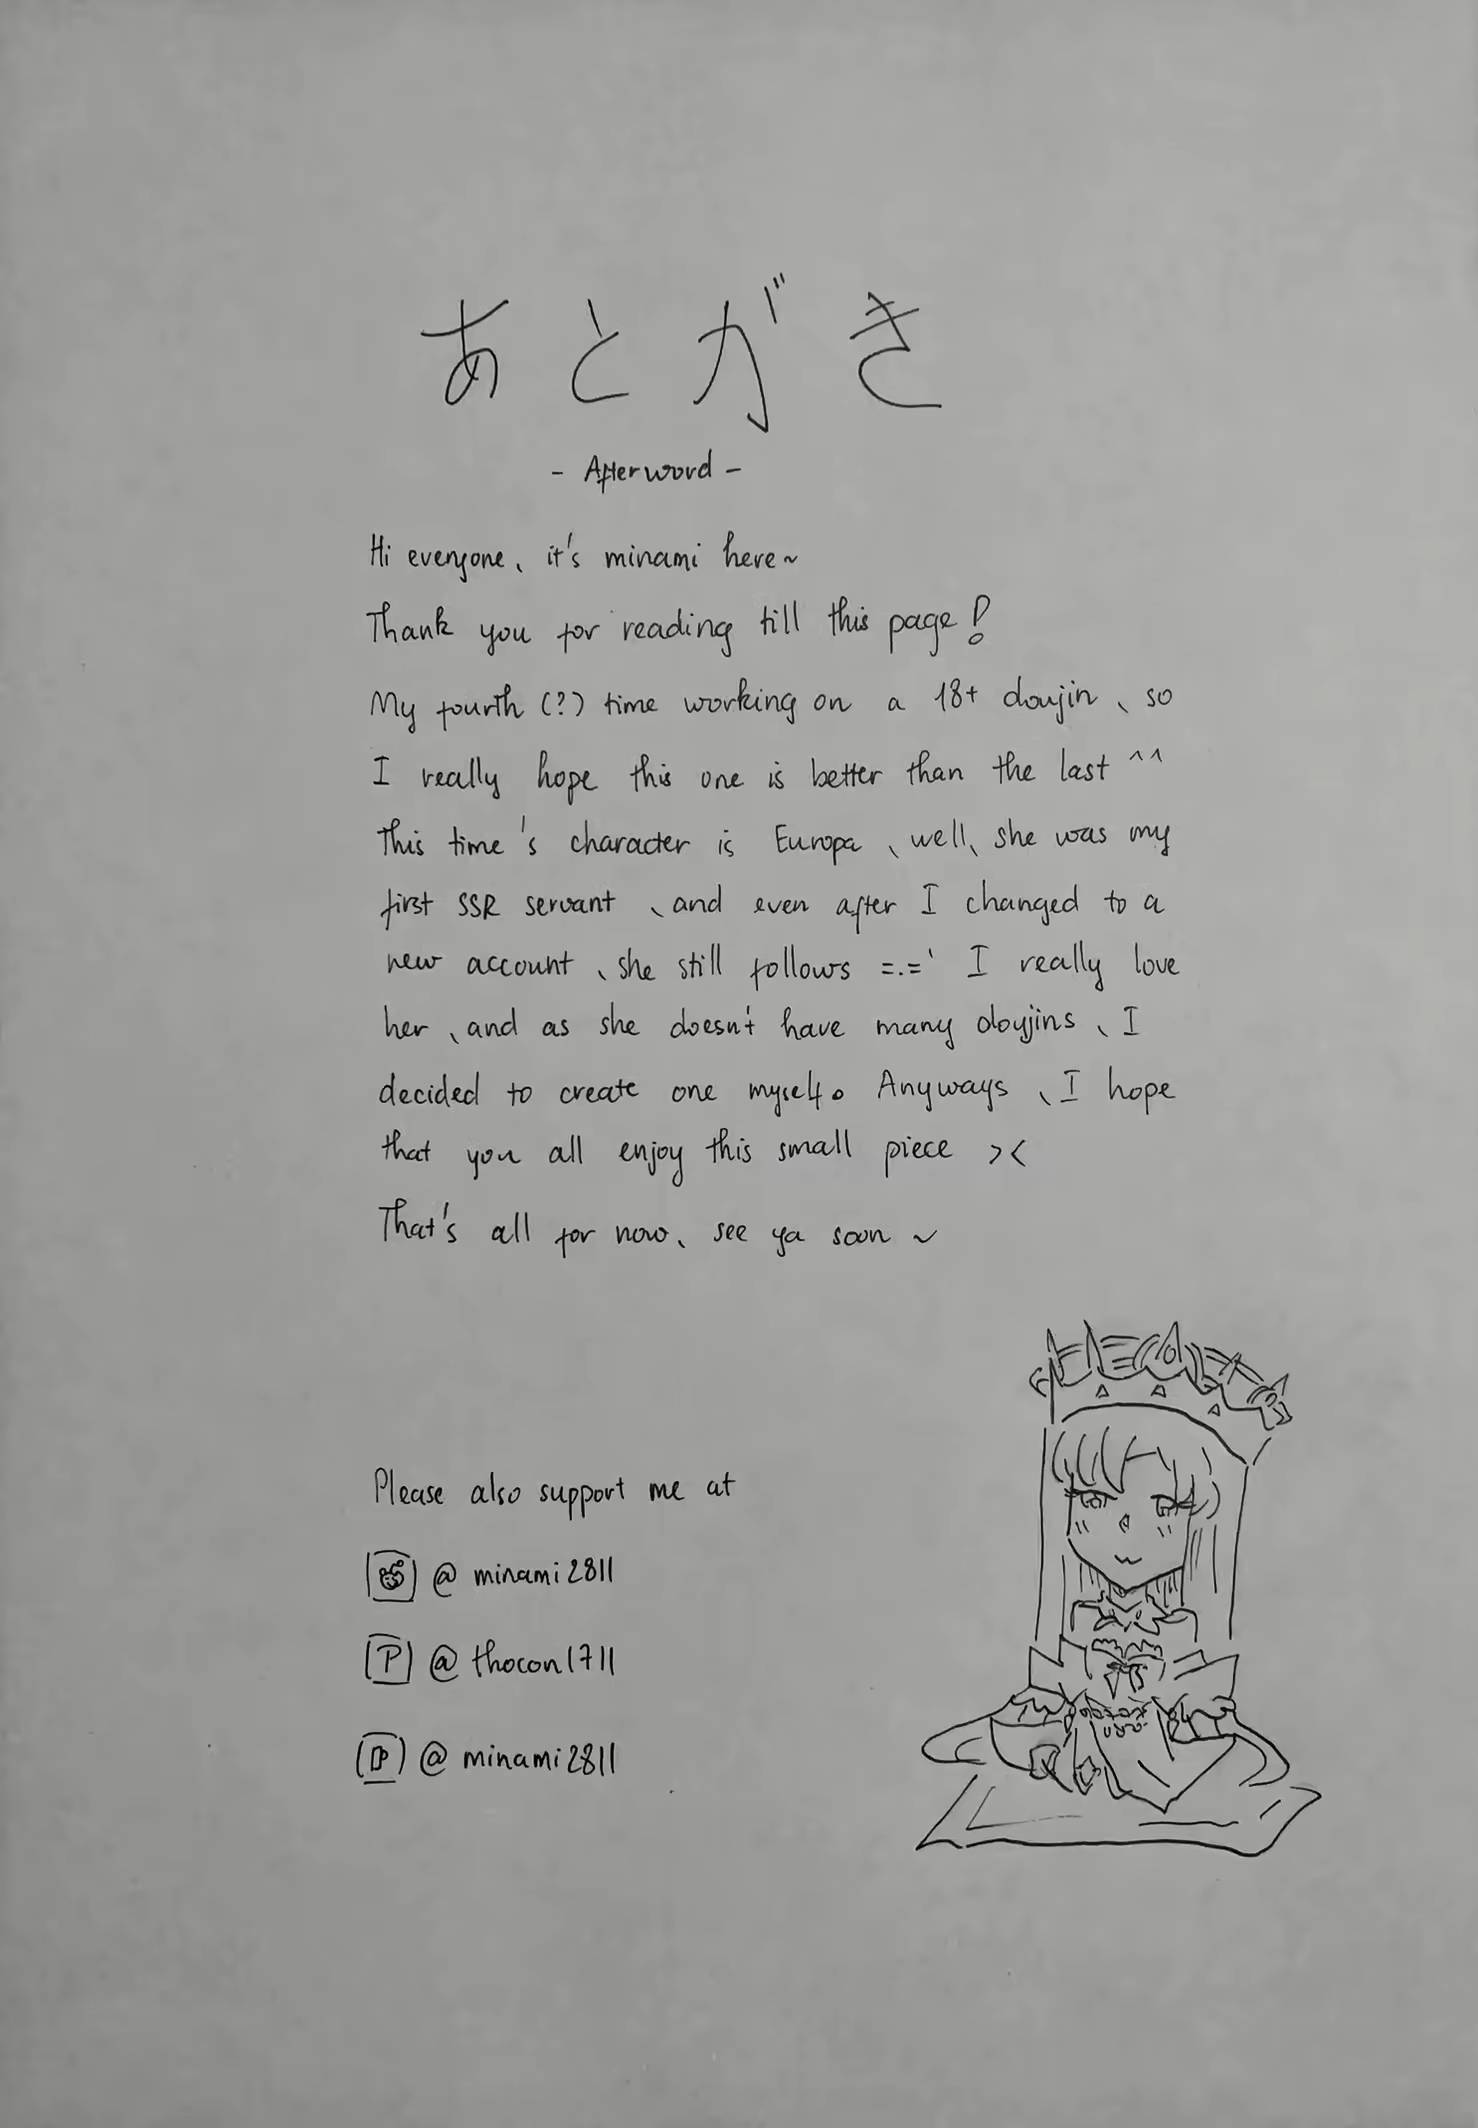 あとがき
- Afterword -
Hi everyone、it's minami here~
Thank you for reading till this page!
My fourth (?) time working on a 18+ doujin、so
I really hope this one is better than the last ^^
This time's character is Europa、well、she was my
first SSR servant、and even after I changed to a
new account、she still follows =.=' I really love
her、and as she doesn't have many doujins、I
decided to create one myself。Anyways、I hope
that you all enjoy this small piece ><
That's all for now、see ya soon ~
Please also support me at
@ minami2811
P @ thocon1711
P @ minami2811